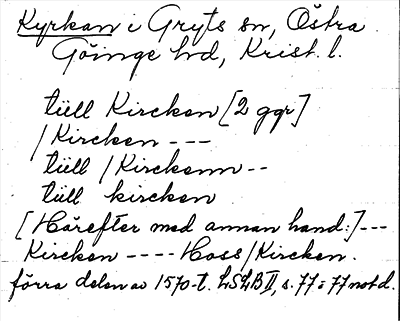 Kyrkan i Gryts sn, Östra
Göinge hd, Krist. l.
tüll Kircken [2 ggr]
/ Kircken ---
tüll / Kirckenn --
tüll kircken
[Härefter med annan hand:] ---
Kircken ---- Hoss / Kircken.
förra delen av 1570-t. LSLB II, s. 77 o 77 not d.